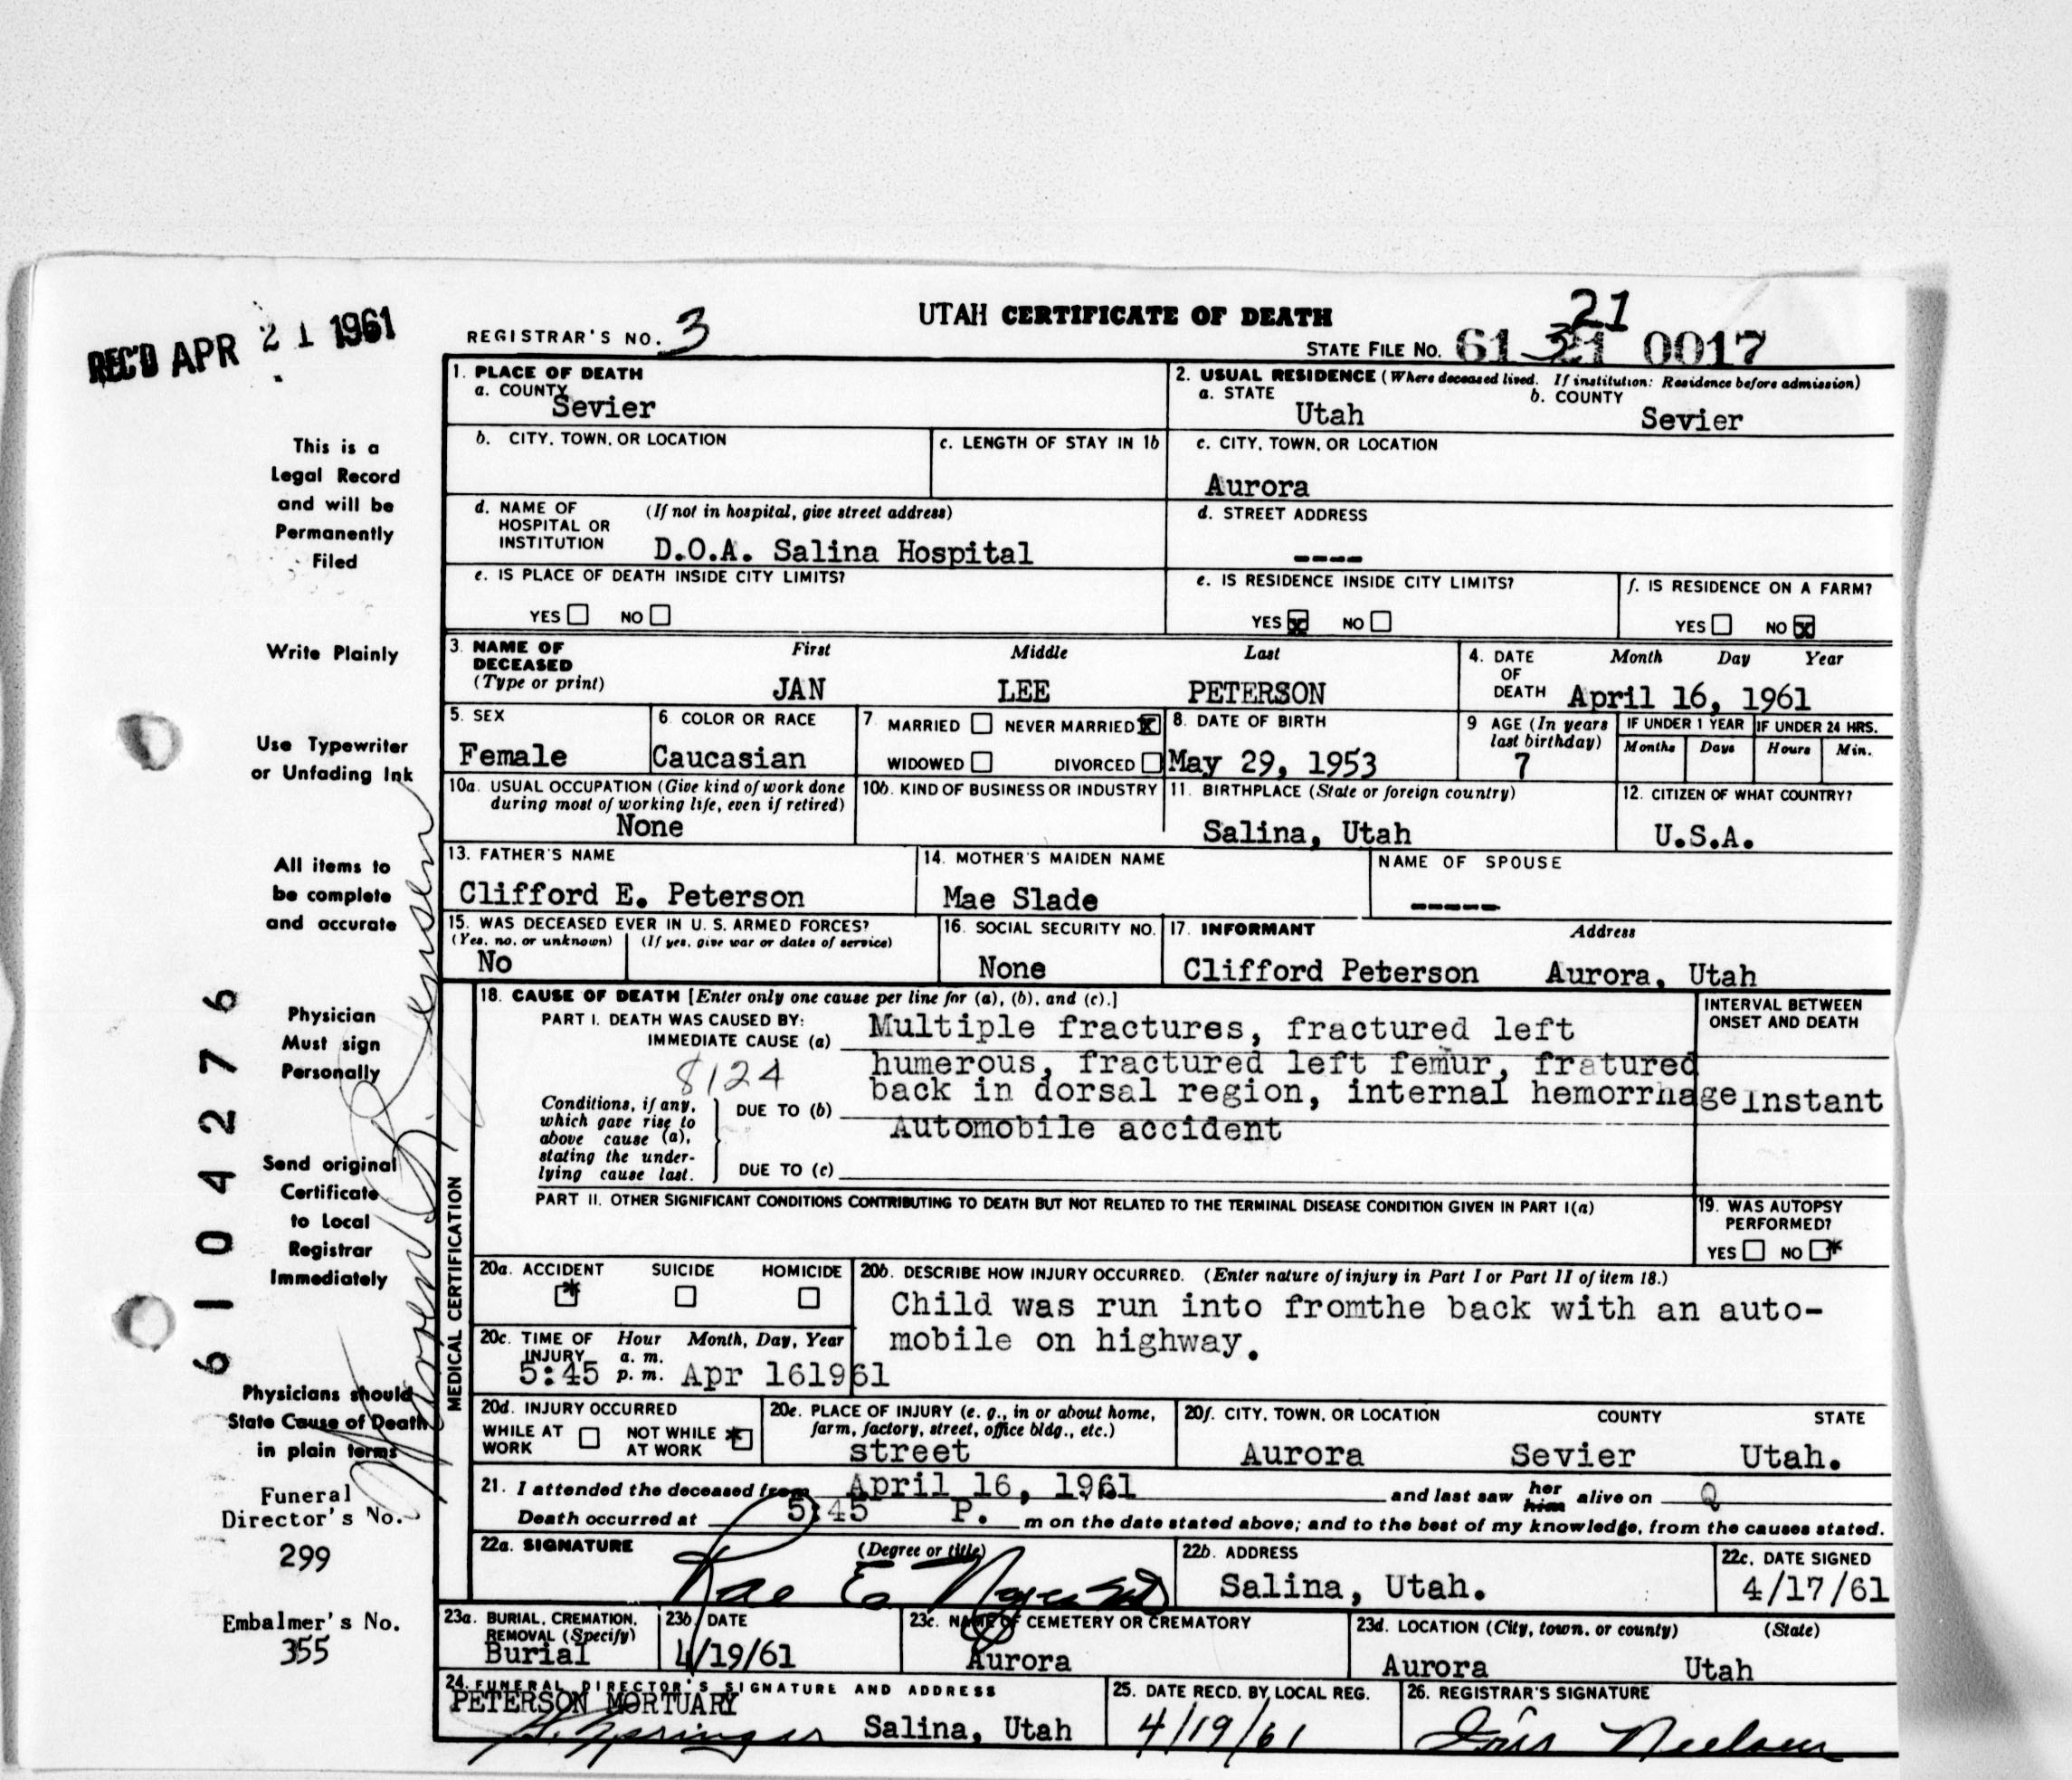 REC'D APR 21 1961
UTAH CERTIFICATE OF DEATH
REGISTRAR'S NO. 3
21
STATE FILE NO. 61 0017
This is a
Legal Record
and will be
Permanently
Filed
Write Plainly
Use Typewriter
or Unfading Ink
All items to
be complete
and accurate
Physician
Must sign
Personally
Send original
Certificate
to Local
Registrar
Immediately
Physicians should
State Cause of Death
in plain terms
Funeral
Director's No.
299
Embalmer's No.
355
6104276
1. PLACE OF DEATH
a. COUNTY
Sevier
2. USUAL RESIDENCE (Where deceased lived. If institution: Residence before admission)
a. STATE b. COUNTY
Utah Sevier
b. CITY, TOWN, OR LOCATION
c. LENGTH OF STAY IN 1b
c. CITY, TOWN, OR LOCATION
Aurora
d. NAME OF (If not in hospital, give street address)
HOSPITAL OR
INSTITUTION D.O.A. Salina Hospital
d. STREET ADDRESS
----
e. IS PLACE OF DEATH INSIDE CITY LIMITS?
YES NO
e. IS RESIDENCE INSIDE CITY LIMITS?
YES x NO
f. IS RESIDENCE ON A FARM?
YES NO x
3. NAME OF First Middle Last
DECEASED
(Type or print) JAN LEE PETERSON
4. DATE Month Day Year
OF
DEATH April 16, 1961
5. SEX
Female
6. COLOR OR RACE
Caucasian
7. MARRIED NEVER MARRIED x
WIDOWED DIVORCED
8. DATE OF BIRTH
May 29, 1953
9 AGE (In years
last birthday)
7
IF UNDER 1 YEAR
Months Days
IF UNDER 24 HRS.
Hours Min.
10a. USUAL OCCUPATION (Give kind of work done
during most of working life, even if retired)
None
10b. KIND OF BUSINESS OR INDUSTRY
11. BIRTHPLACE (State or foreign country)
Salina, Utah
12. CITIZEN OF WHAT COUNTRY?
U.S.A.
13. FATHER'S NAME
Clifford E. Peterson
14. MOTHER'S MAIDEN NAME
Mae Slade
NAME OF SPOUSE
-----
15. WAS DECEASED EVER IN U. S. ARMED FORCES?
(Yes, no, or unknown) (If yes, give war or dates of service)
No
16. SOCIAL SECURITY NO.
None
17. INFORMANT Address
Clifford Peterson Aurora, Utah
MEDICAL CERTIFICATION
18. CAUSE OF DEATH [Enter only one cause per line for (a), (b), and (c).]
PART I. DEATH WAS CAUSED BY:
IMMEDIATE CAUSE (a)
Multiple fractures, fractured left
humerous, fractured left femur, fratured
back in dorsal region, internal hemorrhage
8124
Conditions, if any,
which gave rise to
above cause (a),
stating the under-
lying cause last.
DUE TO (b)
Automobile accident
DUE TO (c)
INTERVAL BETWEEN
ONSET AND DEATH
Instant
PART II. OTHER SIGNIFICANT CONDITIONS CONTRIBUTING TO DEATH BUT NOT RELATED TO THE TERMINAL DISEASE CONDITION GIVEN IN PART I(a)
19. WAS AUTOPSY
PERFORMED?
YES NO *
20a. ACCIDENT SUICIDE HOMICIDE
*
20b. DESCRIBE HOW INJURY OCCURRED. (Enter nature of injury in Part I or Part II of item 18.)
Child was run into fromthe back with an auto-
mobile on highway.
20c. TIME OF Hour Month, Day, Year
INJURY a. m.
5:45 p. m. Apr 161961
20d. INJURY OCCURRED
WHILE AT NOT WHILE *
WORK AT WORK
20e. PLACE OF INJURY (e. g., in or about home,
farm, factory, street, office bldg., etc.)
street
20f. CITY, TOWN, OR LOCATION COUNTY STATE
Aurora Sevier Utah.
21. I attended the deceased from April 16, 1961 and last saw her him alive on
Death occurred at 5:45 P. m on the date stated above; and to the best of my knowledge, from the causes stated.
22a. SIGNATURE (Degree or title)
Rae E
22b. ADDRESS
Salina, Utah.
22c. DATE SIGNED
4/17/61
23a. BURIAL, CREMATION,
REMOVAL (Specify)
Burial
23b DATE
4/19/61
23c. NAME OF CEMETERY OR CREMATORY
Aurora
23d. LOCATION (City, town, or county) (State)
Aurora Utah
24. FUNERAL DIRECTOR'S SIGNATURE AND ADDRESS
PETERSON MORTUARY
Springer Salina, Utah
25. DATE RECD. BY LOCAL REG.
4/19/61
26. REGISTRAR'S SIGNATURE
Iris Nielsen